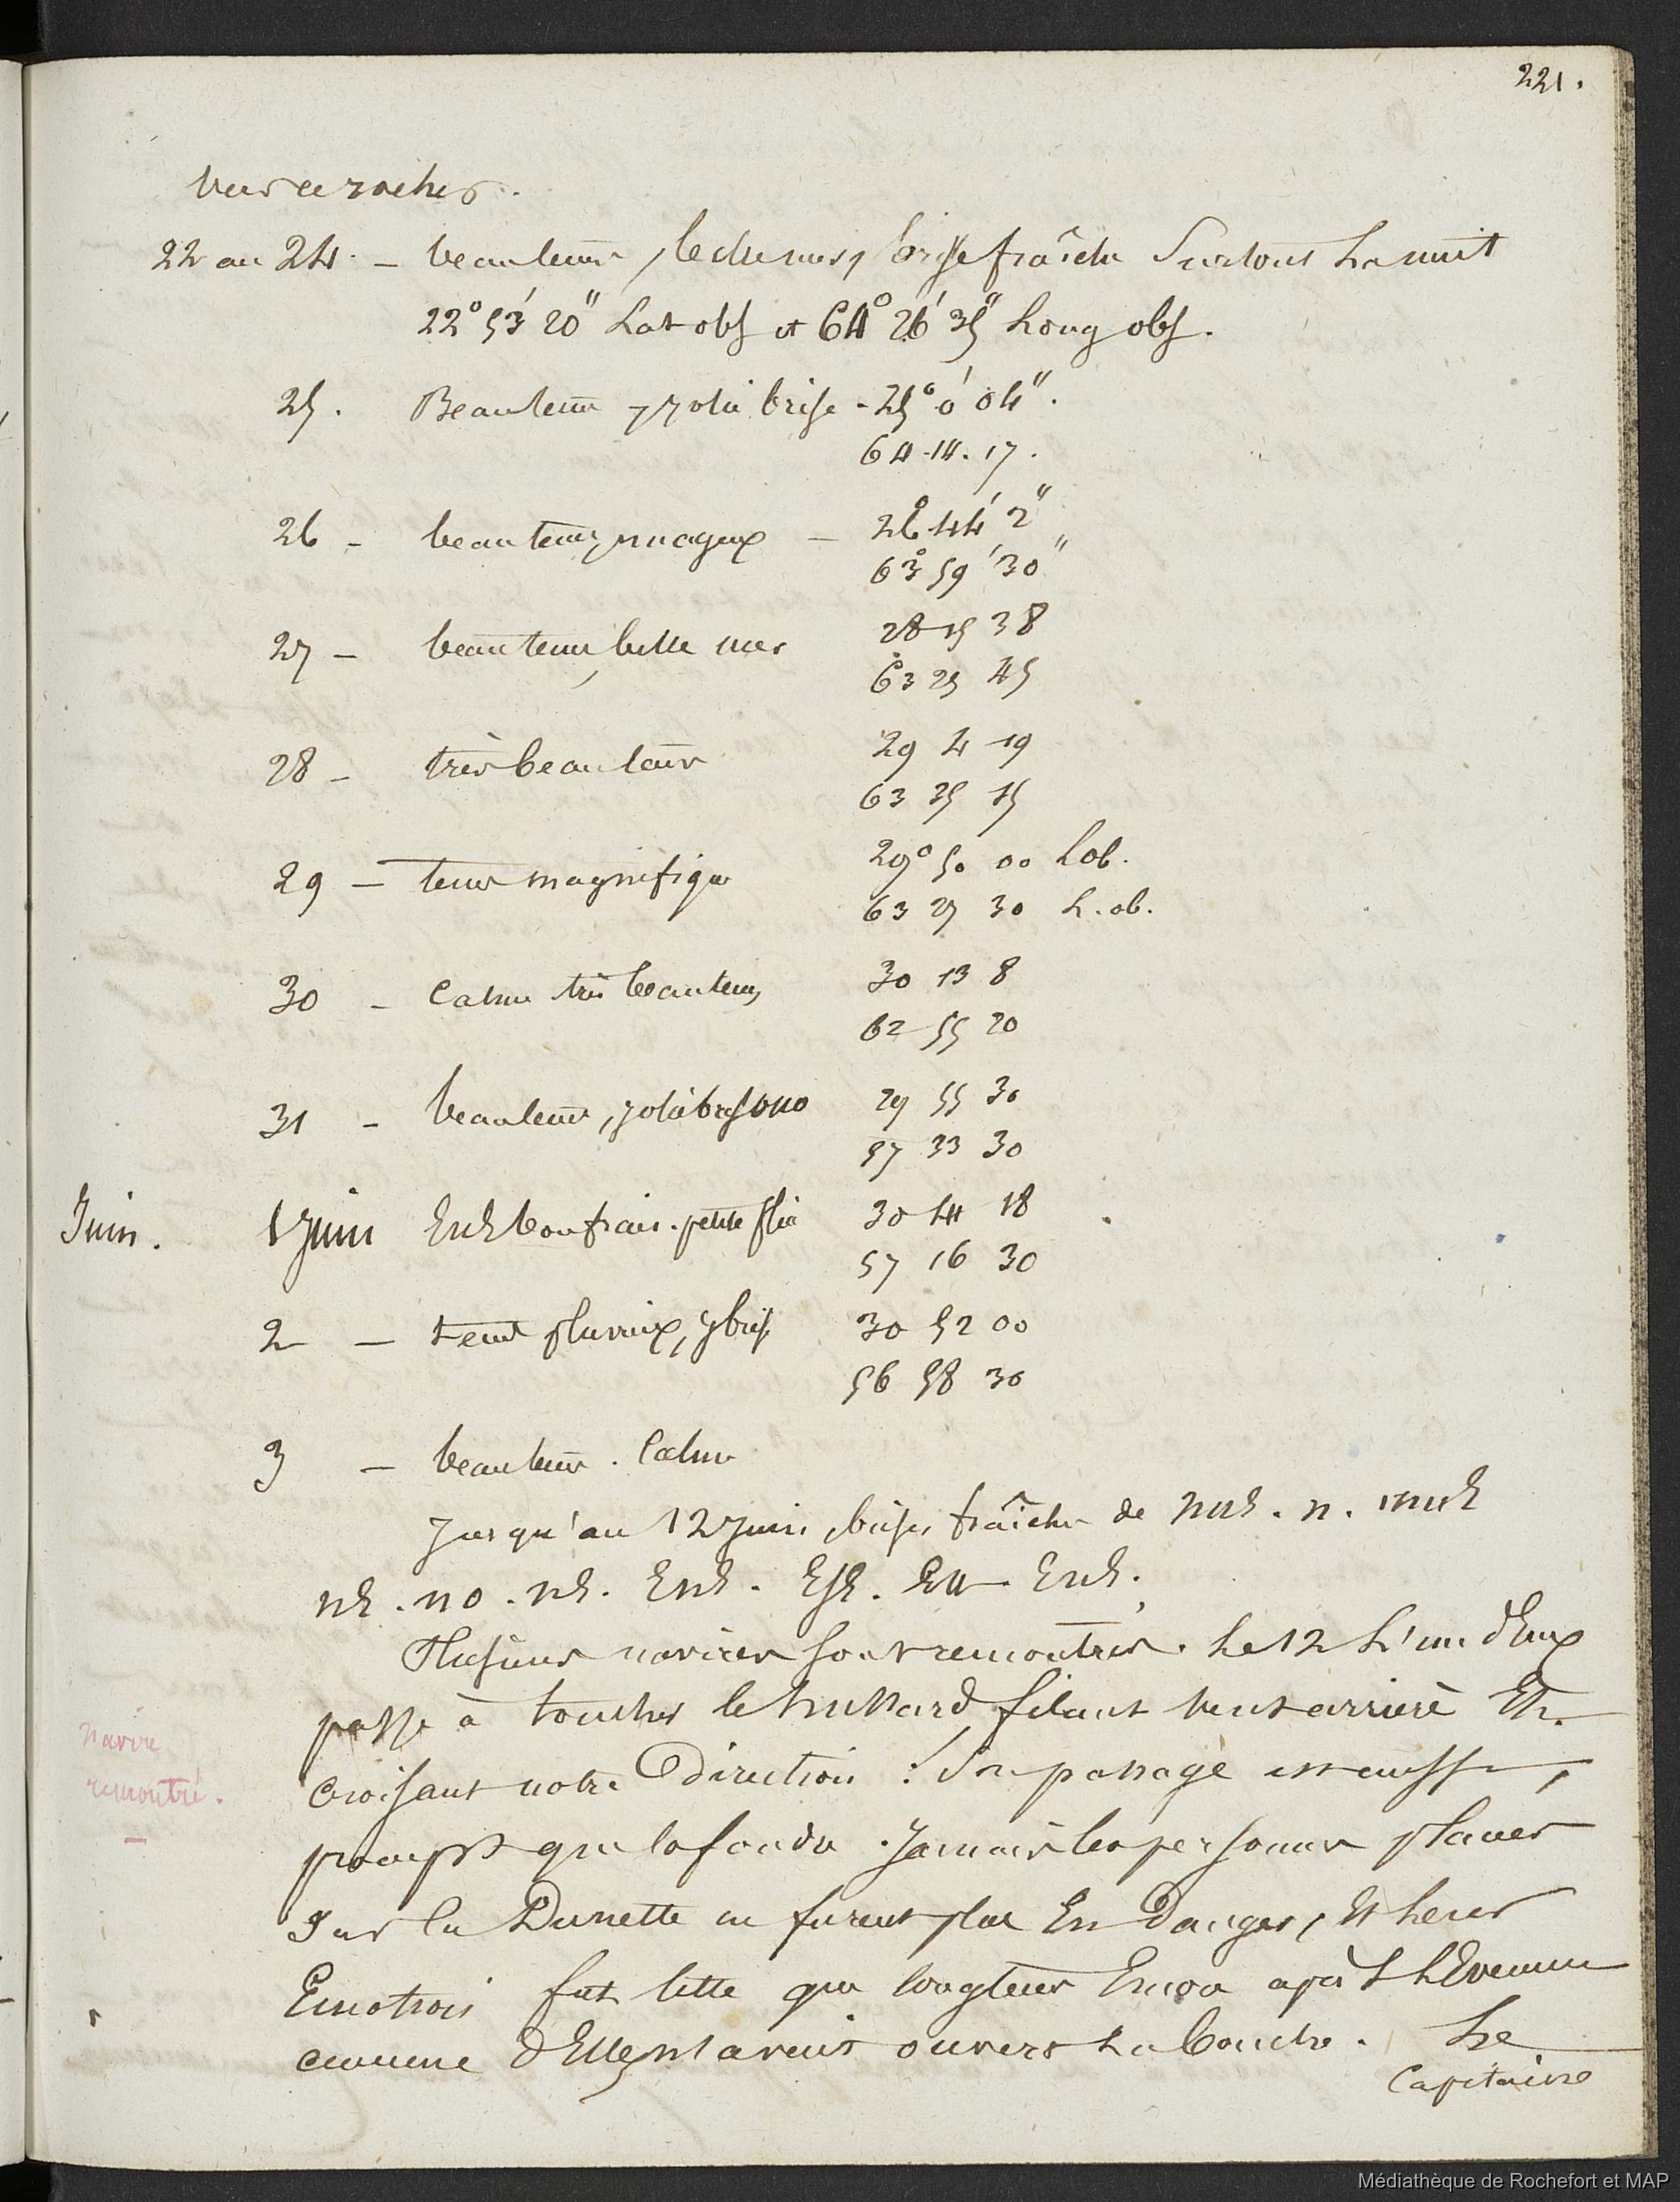 221.
vers ce rocher.
22 au 24. — beau tems, belle mer, brise fraîche surtout La nuit
22° 53' 20" Lat obs et 64° 26' 35" Long obs.
25. Beau tems jolie brise - 25° 0' 04".
64.14.17.
26 — beau tems, nuageux — 26° 44' 2"
63° 59' 30"
27 — beau tems, belle mer 28 15 38
63 25 45
28 — très beau tems 29 4 19
63 35 15
29 — tems magnifique 29° 50 00 L ob.
63 27 30 L. ob.
30 — Calme très beau tems 30 13 8
62 55 20
31 — beau tems, jolie brise ono 29 55 30
57 33 30
Juin. 1 Juin EnE bon frais. petite pluie 30 44 18
57 16 30
2 — tems pluvieux, j brise 30 52 00
56 58 30
3 — beau tems. Calme
Jusqu'au 12 Juin, brise fraîche de nnE. n.
nE. no. nE. EnE. EsE. EnE.
Plusieurs navires sont rencontrés. Le 12 L'un d'Eux
passe à toucher le hussard filant vent arrière Et
croisant notre Direction : Son passage est aussi
prompt que la foudre. Jamais les personnes placées
sur la Dunette ne furent plus En Danger, Et leur
Emotion fut telle que longtems Encore après L'Evenement
aucune d'Elles n'avait ouvert La bouche. Le
Capitaine
navire
rencontré.
Médiathèque de Rochefort et MAP